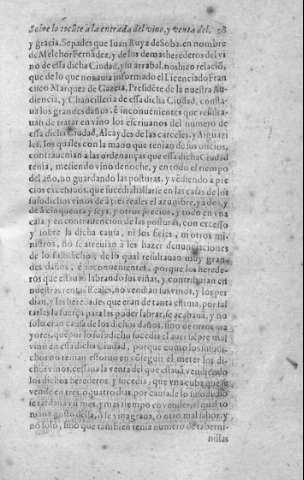 Sobre lo tocãte a la entrada del vino, y venta del. 28
y gracia. Sepades que Iuan Ruyz de Soba, en nombre
de Melchor Fernãdez, y de los demas herederos del vi
no de essa dicha Ciudad, y su arrabal, nos hizo relaciõ,
que de lo que nos auia informado el Licenciado Fran
cisco Marquez de Gazeta, Presidẽte de la nuestra Au-
diencia, y Chancilleria de essa dicha Ciudad, consta-
ua los grandes daños, è inconuenientes que resulta-
uan de tratar en vino los escriuanos del numero de
essa dicha Ciudad, Alcaydes de las carceles, y Alguazi
les, los quales con la mano que tenian de sus oficios,
contrauenian a las ordenanças que essa dicha Ciudad
tenia, metiendo vino de noche, y en todo el tiempo
del año, no guardando las posturas, y vẽdiendo a pre
cios excessiuos, que sucedia hallarse en las casas de los
susodichos vinos de à seis reales el açumbre, y à dos, y
de à cinquenta y seys, y otros precios, y todo en vna
casa y en contrauencion de las posturas, con excesso
y sobre la dicha causa, ni los fieles, ni otros mi-
nistros, no se atreuian à les hazer denunciaciones
de lo susodicho, de lo qual resultauan muy gran
des daños, è inconuenientes, porque los herede-
ros que estauan labrando sus viñas, y contribuian en
nuestras rentas Reales, no vendian sus vinos, y los per
dian, y las heredades que eran de tanta estima, por fal
tarles la fuerça para las poder labrar, se acabauã, y no
solo eran causa de los dichos daños, sino de otros ma
yores, que por lo susodicho sucedia el auerse por mal
vino en essa dicha Ciudad, porque como los susodi-
chos no tenian estoruo en cõseguir el meter los di-
chos vinos, cessaua la venta del que estauã vendiendo
los dichos herederos, y sucedia, que vna cuba que se
vende en tres, o quatro dias, por causa de lo susodicho
se tardaua vn mes, y mas tiempo en vender, el qual to
maua gusto della, ò se vinagraua, ò otro mal sabor, y
no solo, sino que tambien tenia numero de taberni-
nulas